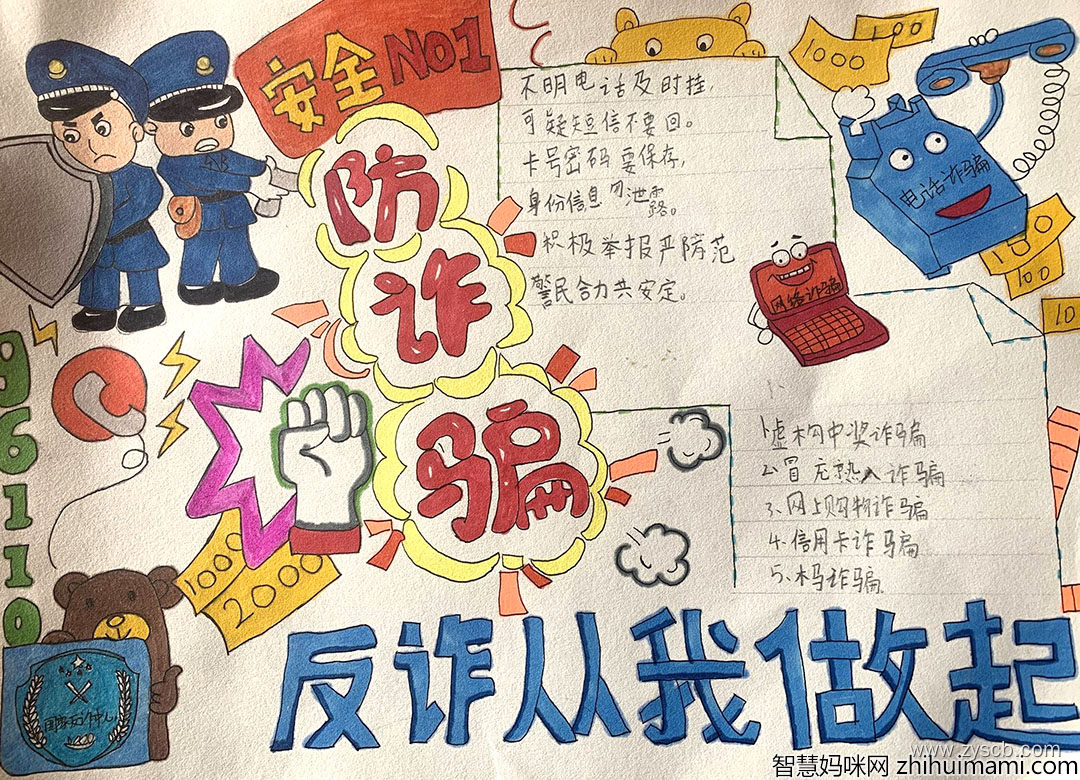 安全NO1
防
诈
骗
不明电话及时挂,
可疑短信不要回。
卡号密码要保存,
身份信息勿泄露。
积极举报严防范
警民合力共安定。
1000
100
电话诈骗
100
100
10
网络诈骗
1、虚构中奖诈骗
2、冒充熟人诈骗
3、网上购物诈骗
4、信用卡诈骗
5、木马诈骗
96110
1000
2000
国家反诈中心
反诈从我做起
www.zyscb.com
智慧妈咪网 zhihuimami.com